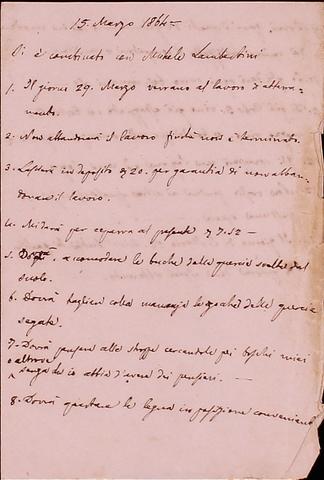 15. Marzo 1864
Si è combinato con Michele Lambertini
1. Il giorno 29. Marzo verranno al lavoro d'atterra-
mento.
2. Non abbandonerà il lavoro finché non è terminato.
3. Lascierà in deposito 20. per garanzia di non abban-
donare il lavoro.
4. Mi darà per caparra al presente 7.52 —
5. Dovrà accomodare le buche dalle quercie svelte dal
suolo.
6. Dovrà tagliare colla mannaja le quercie
segate.
7. Dovrà pensare alle stroppe cercandole pei boschi miei
o altrove
senza che io abbia d'avere dei pensieri. —
8. Dovrà la legna in posizione conveniente